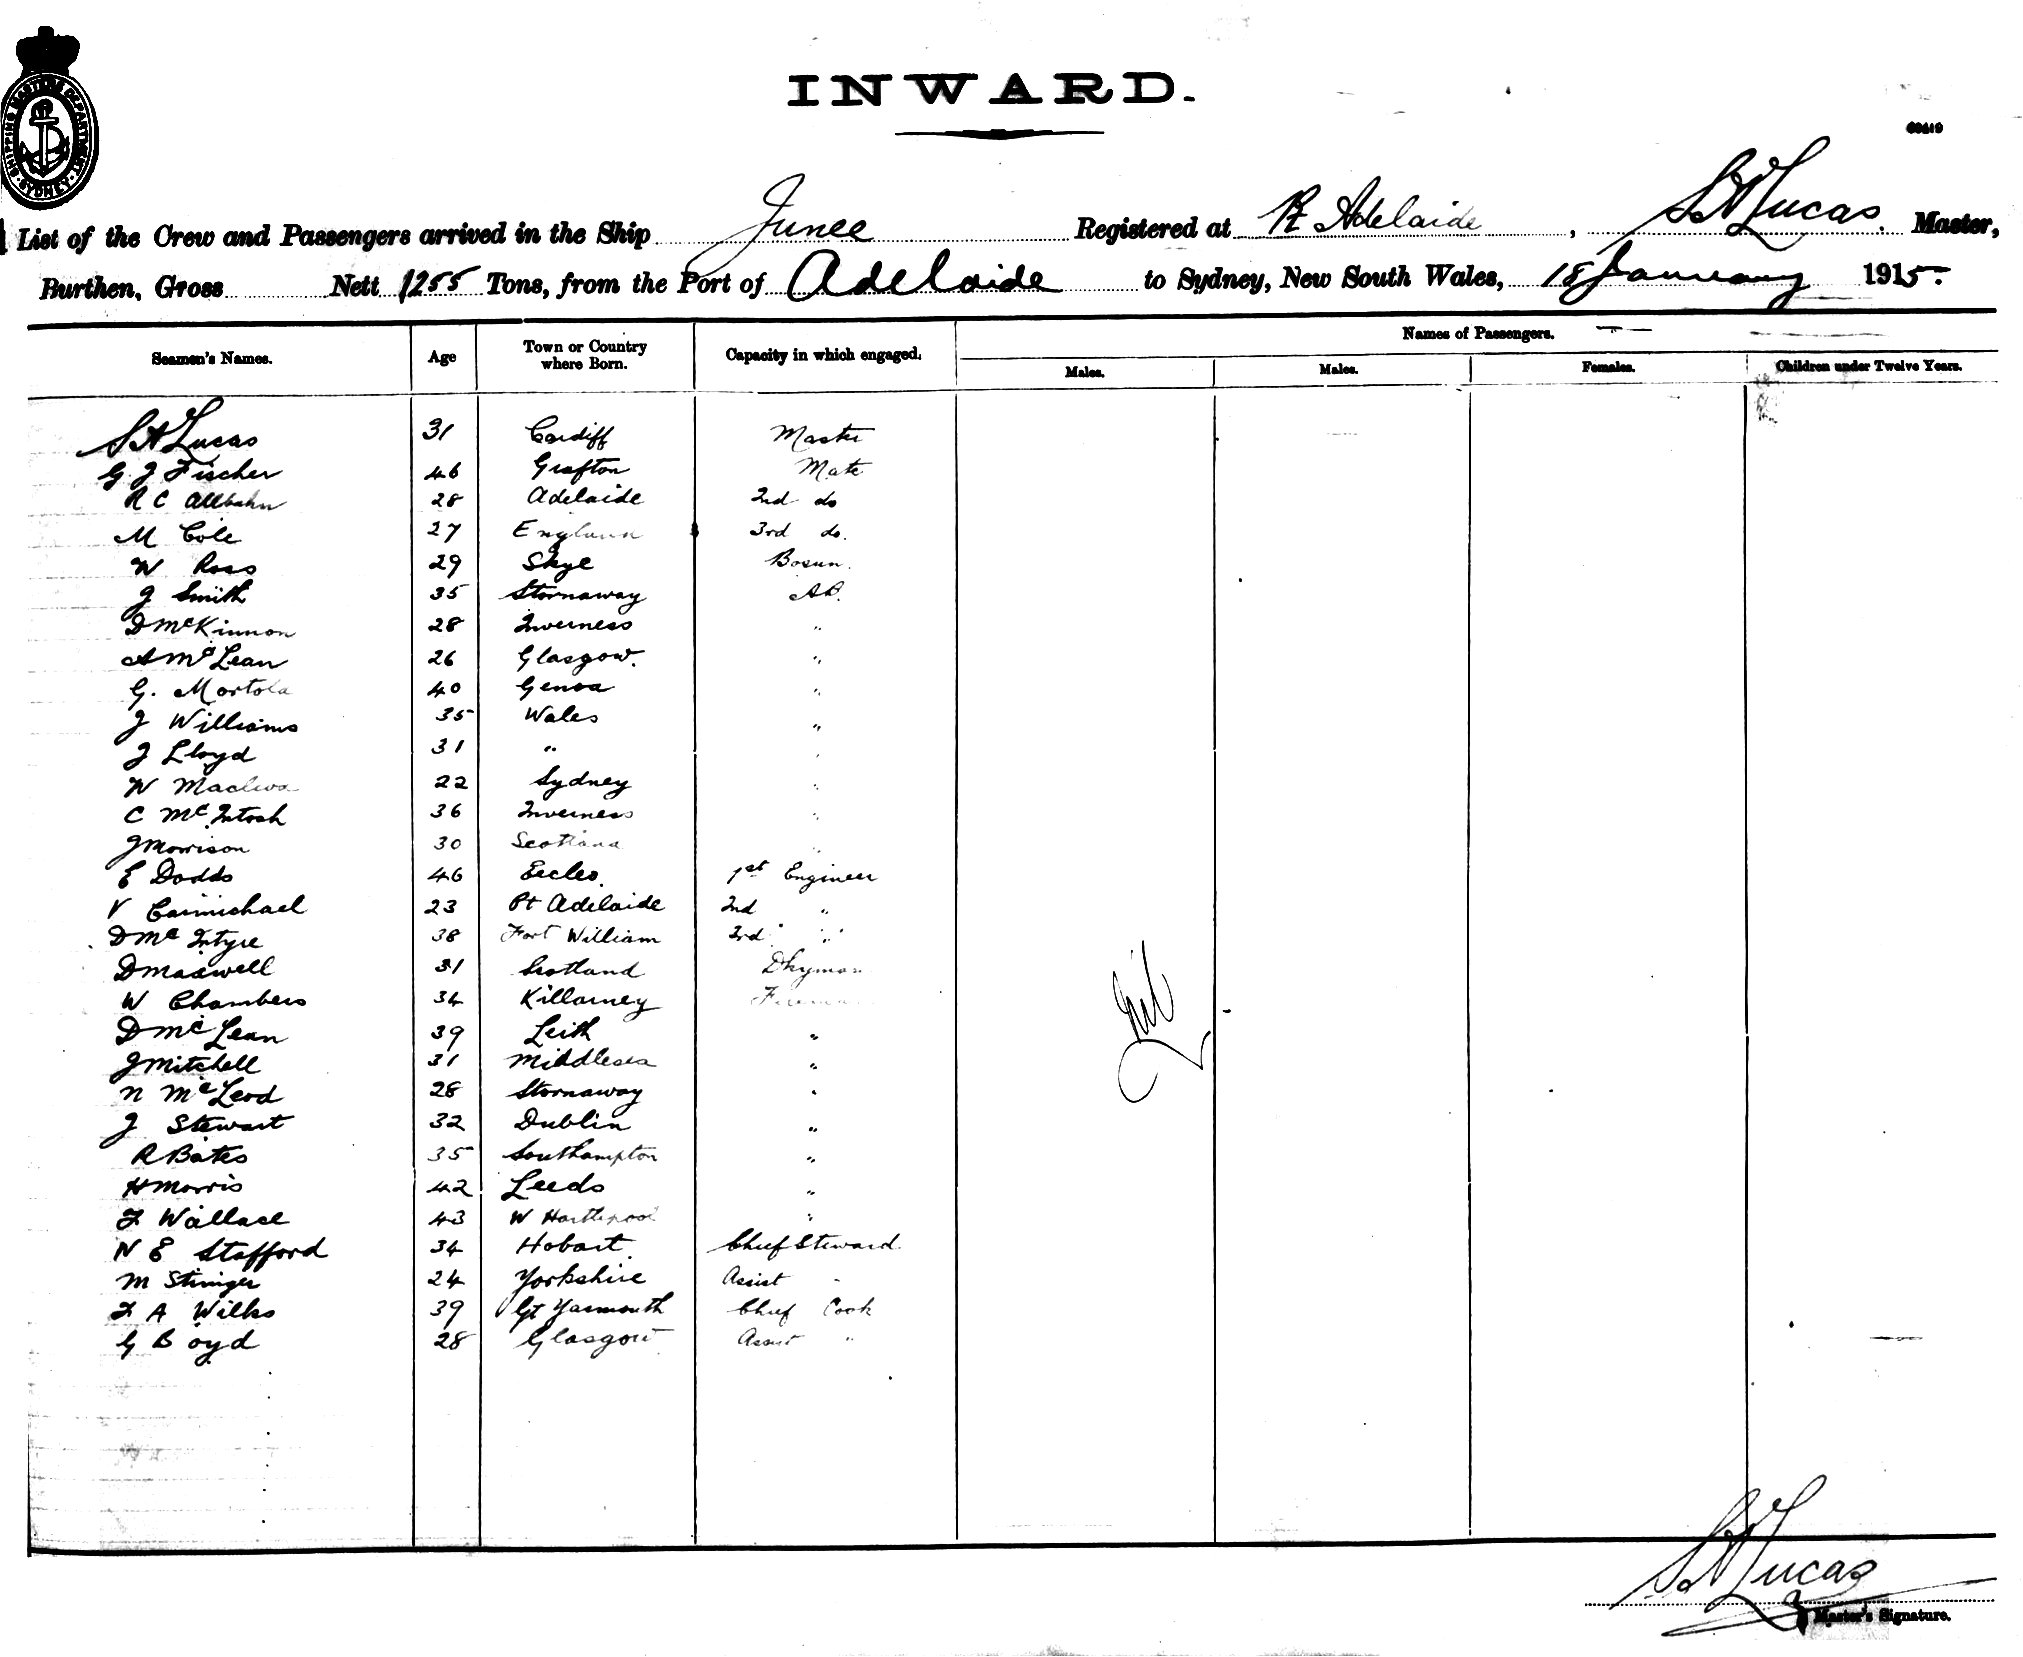 SHIPPING MASTERS DEPARTMENT SYDNEY
INWARD.
List of the Crew and Passengers arrived in the Ship Junee Registered at Pt Adelaide, S A Lucas. Master,
Burthen, Gross Nett 1255 Tons, from the Port of Adelaide to Sydney, New South Wales, 18 January 1915
Names of Passengers.
Seamen's Names. Age Town or Country where Born. Capacity in which engaged. Males. Males. Females. Children under Twelve Years.
S A Lucas 31 Cardiff Master
G J Fischer 46 Grafton Mate
R C 28 Adelaide 2nd do
M Cole 27 3rd do.
W Ross 29 Skye Bosun.
J Smith 35 Stornaway AB.
D McKinnon 28 Inverness "
A McLean 26 Glasgow. "
G. Mortola 40 Genoa "
J Williams 35 Wales "
J Lloyd 31 " "
W 22 Sydney "
C McIntosh 36 Inverness "
J Morrison 30 Scotland "
E Dodds 46 Eccles. 1st Engineer
V Carmichael 23 Pt Adelaide 2nd "
D McIntyre 38 Fort William 3rd "
D Maxwell 31 Scotland Dkyman
W Chambers 34 Killarney Fireman
D McLean 39 Leith "
J Mitchell 31 "
N McLeod 28 Stornaway "
J Stewart 32 Dublin "
R Bates 35 Southampton "
H Morris 42 Leeds "
F Wallace 43 W Hartlepool "
N E Stafford 34 Hobart. Chief Steward.
M Stringer 24 Yorkshire Assist "
F A Wilks 39 Gt Yarmouth Chief Cook
G Boyd 28 Glasgow Assist "
Nil
S A Lucas
Master's Signature.